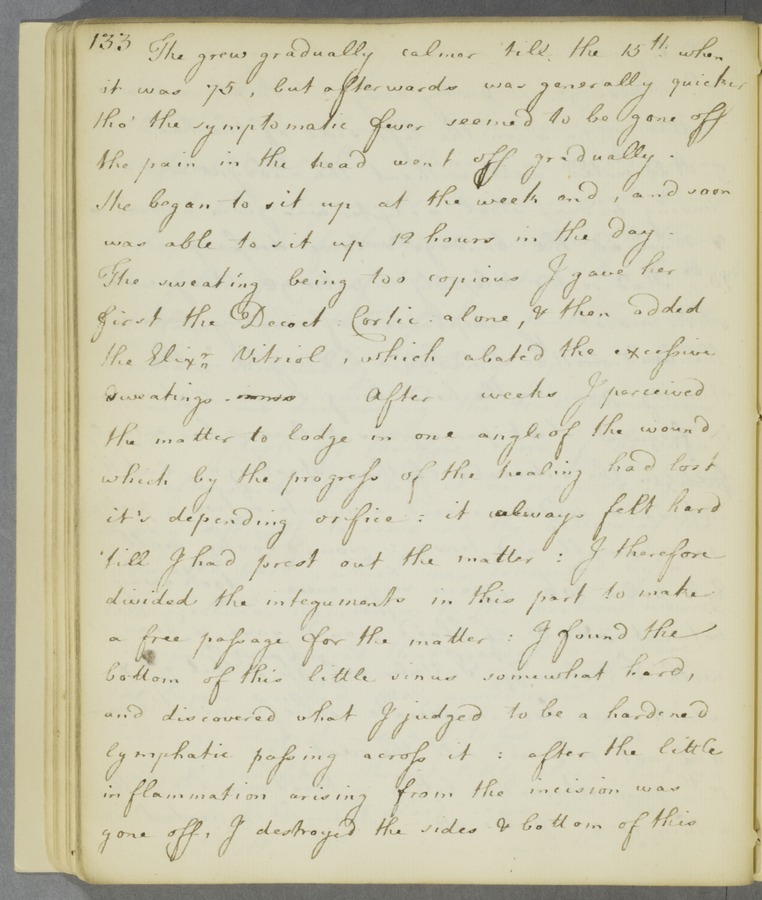 133 The grew gradually calmer till the 15th. when
it was 75, but afterwards was generally quicker
tho' the symptomatic fever seemed to be gone off
the pain in the head went off gradually.
She began to sit up at the week end, and soon
was able to sit up 12 hours in the day.
The sweating being too copious I gave her
first the Decoct. Cortic. alone, & then added
the Elixr. Vitriol, which abated the excessive
sweatings. After weeks I perceived
the matter to lodge in one angle of the wound
which by the progress of the healing had lost
it's depending orifice: it always felt hard
'till I had prest out the matter: I therefore
divided the integuments in this part to make
a free passage for the matter: I found the
bottom of this little sinus somewhat hard,
and discovered what I judged to be a hardened
lymphatic passing across it: after the little
inflammation arising from the incision was
gone off, I destroyed the sides & bottom of this